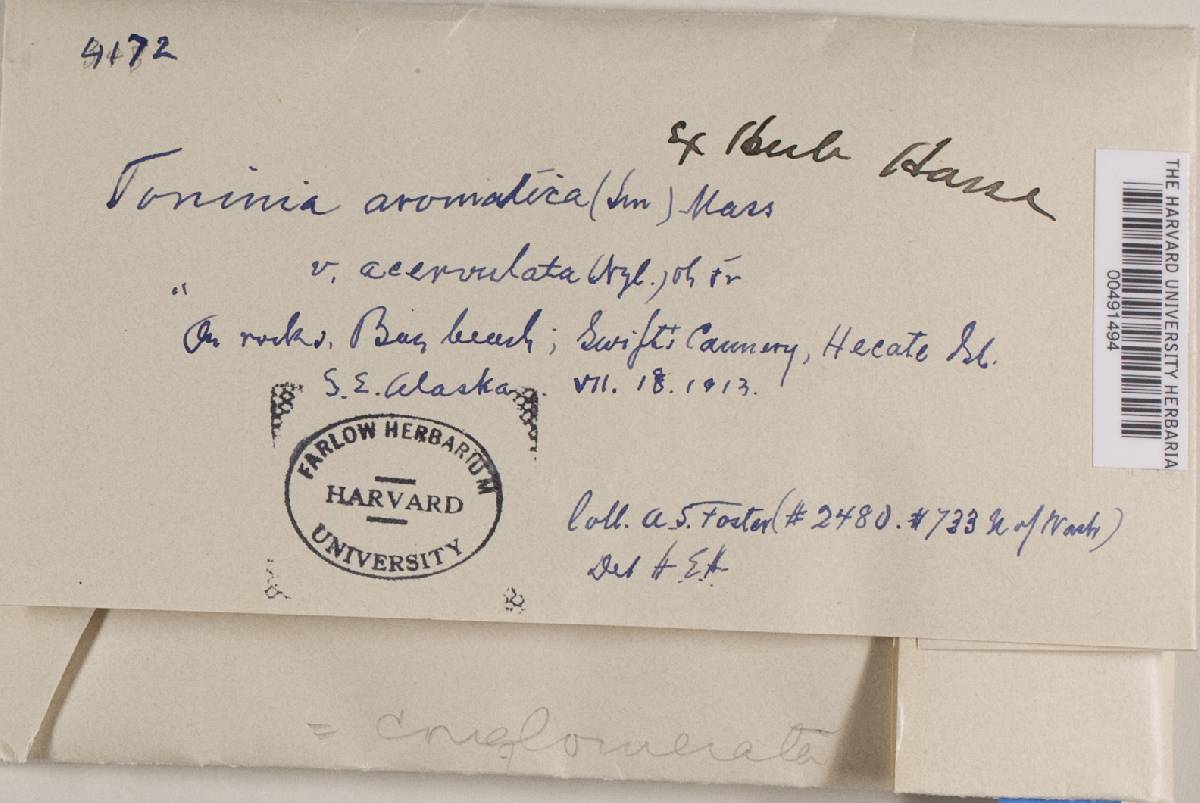 4172
Ex Herb Hasse
Toninia aromatica (Sm) Mass
v. acervulata (Nyl.) Th Fr
"
On rocks, Bay beach; Swift's Cannery, Hecate Isl.
S. E. Alaska VII. 18. 1913.
FARLOW HERBARIUM
HARVARD
UNIVERSITY
Coll. A. S. Foster (# 2480. # 733 U of Wash)
Det H. E. H.
= conglomerata
THE HARVARD UNIVERSITY HERBARIA
00491494